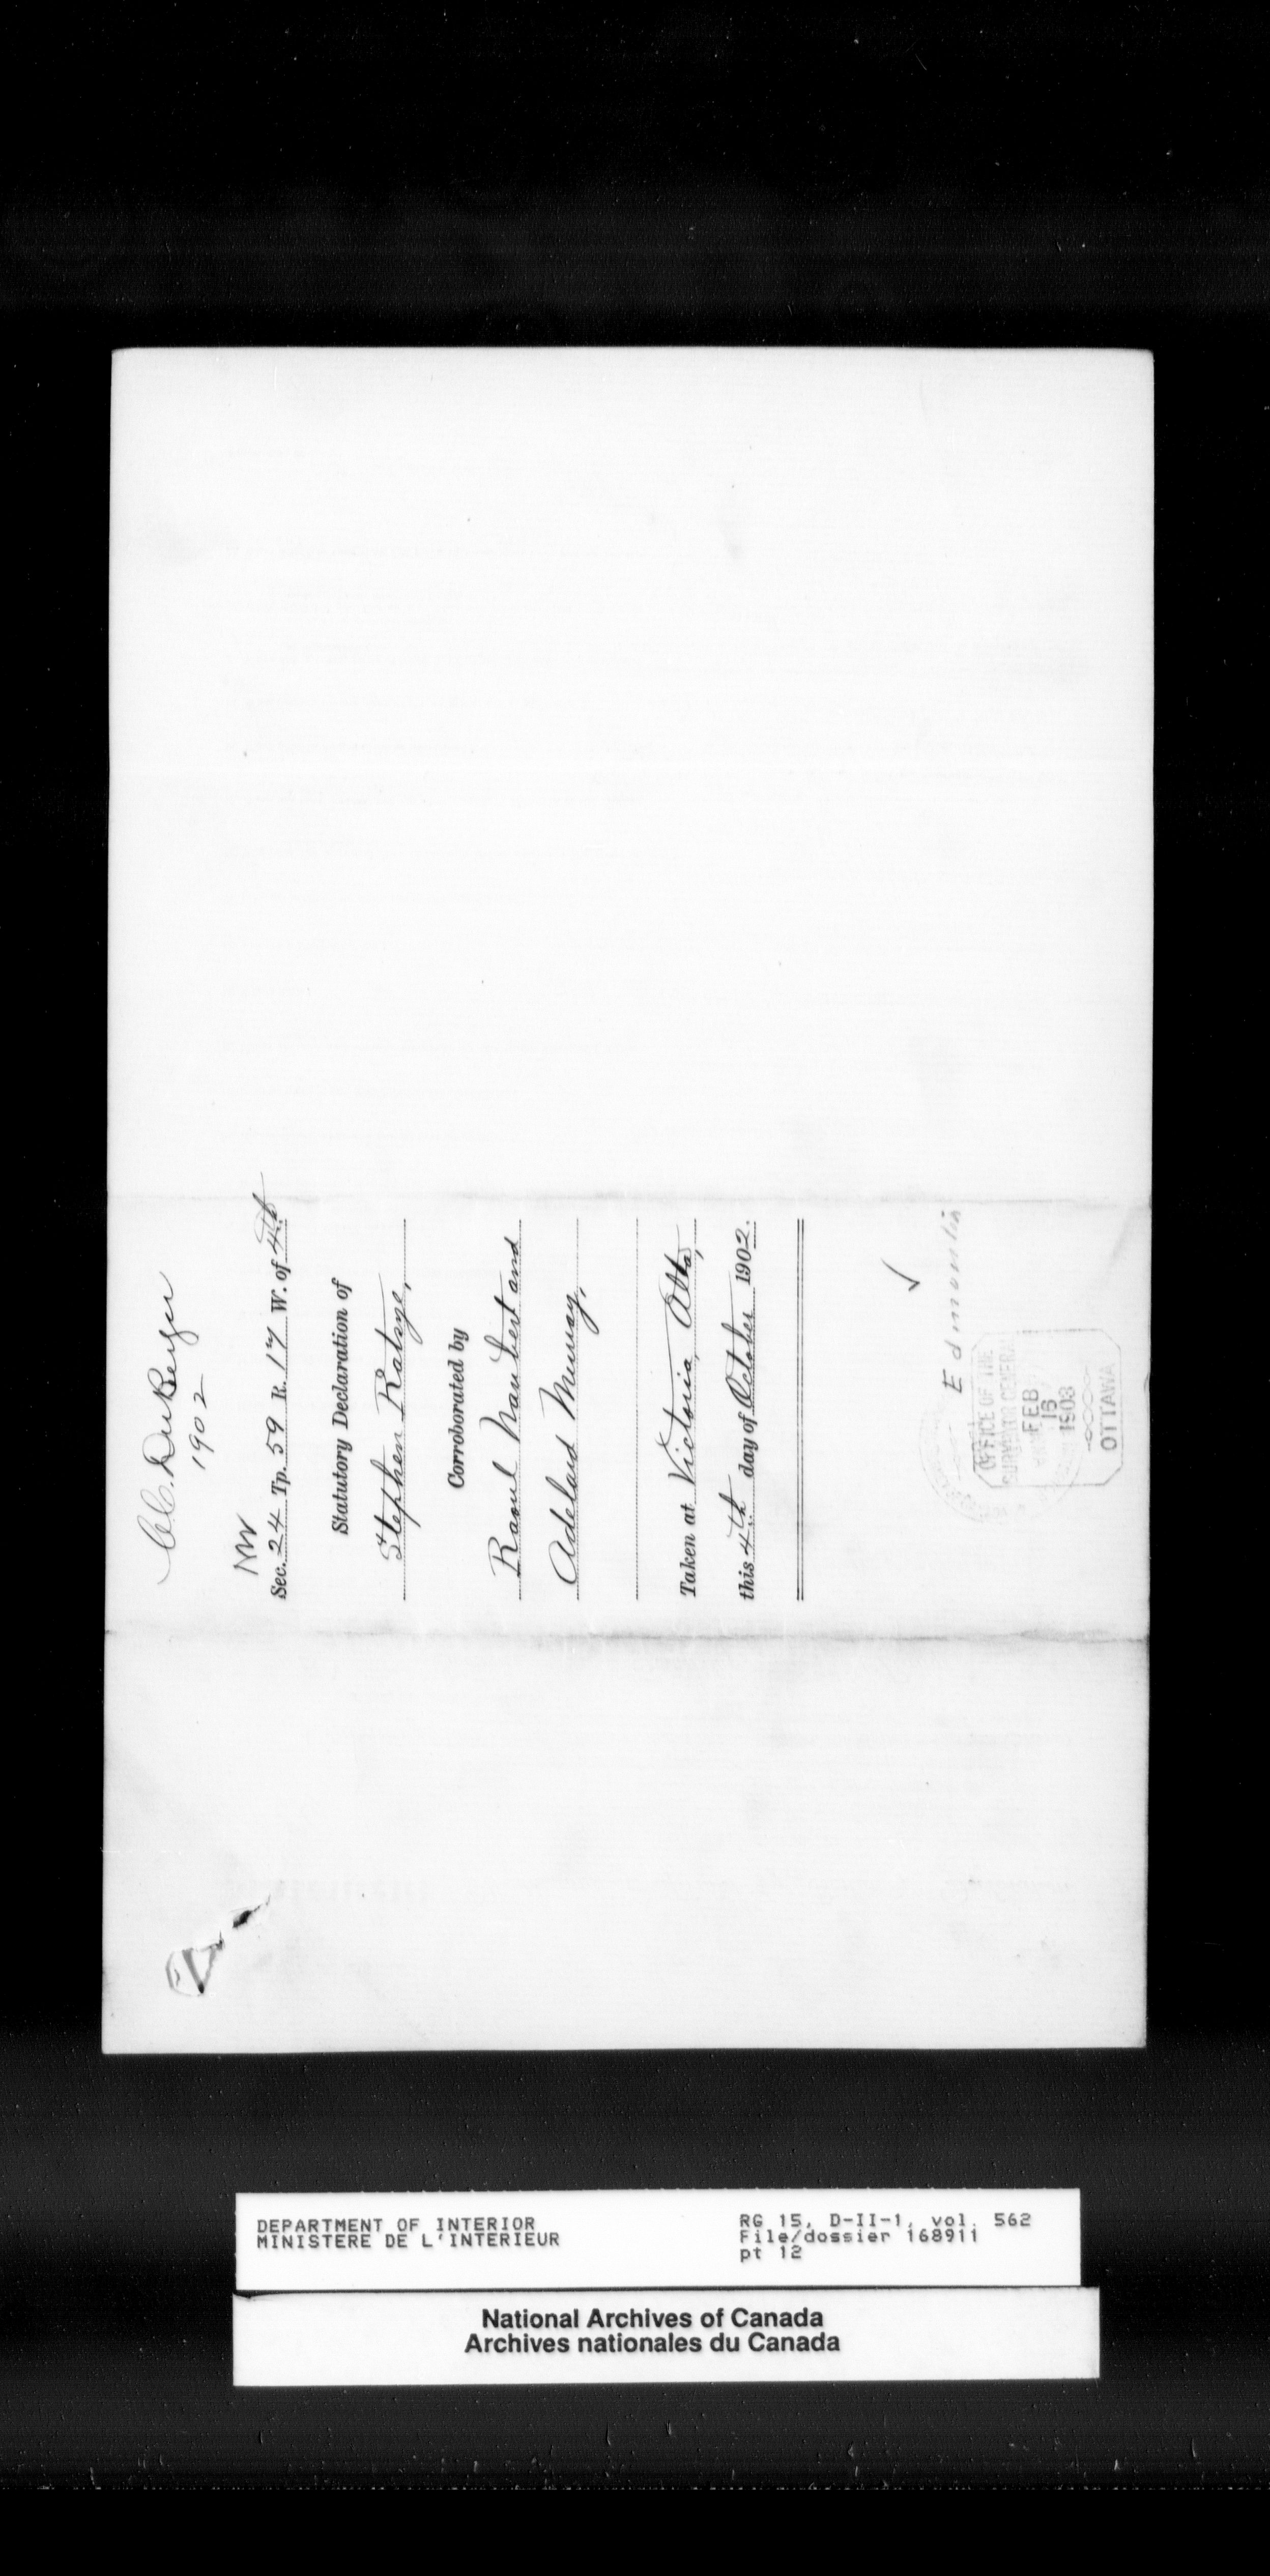 C.C. DuBerger
1902
NW
Sec. 24 Tp. 59 R. 17 W. of 4th
Statutory Declaration of
Stephen Ratsye,
Corroborated by
Raoul Naubert and
Adelard Murray,
Taken at Victoria, Alta,
this 4th day of October 1902.
✓
Edmonton
OFFICE OF THE
SURVEYOR GENERAL
FEB
16
1903
OTTAWA
DEPARTMENT OF INTERIOR
MINISTERE DE L'INTERIEUR
RG 15, D-II-1, vol. 562
File/dossier 168911
pt 12
National Archives of Canada
Archives nationales du Canada